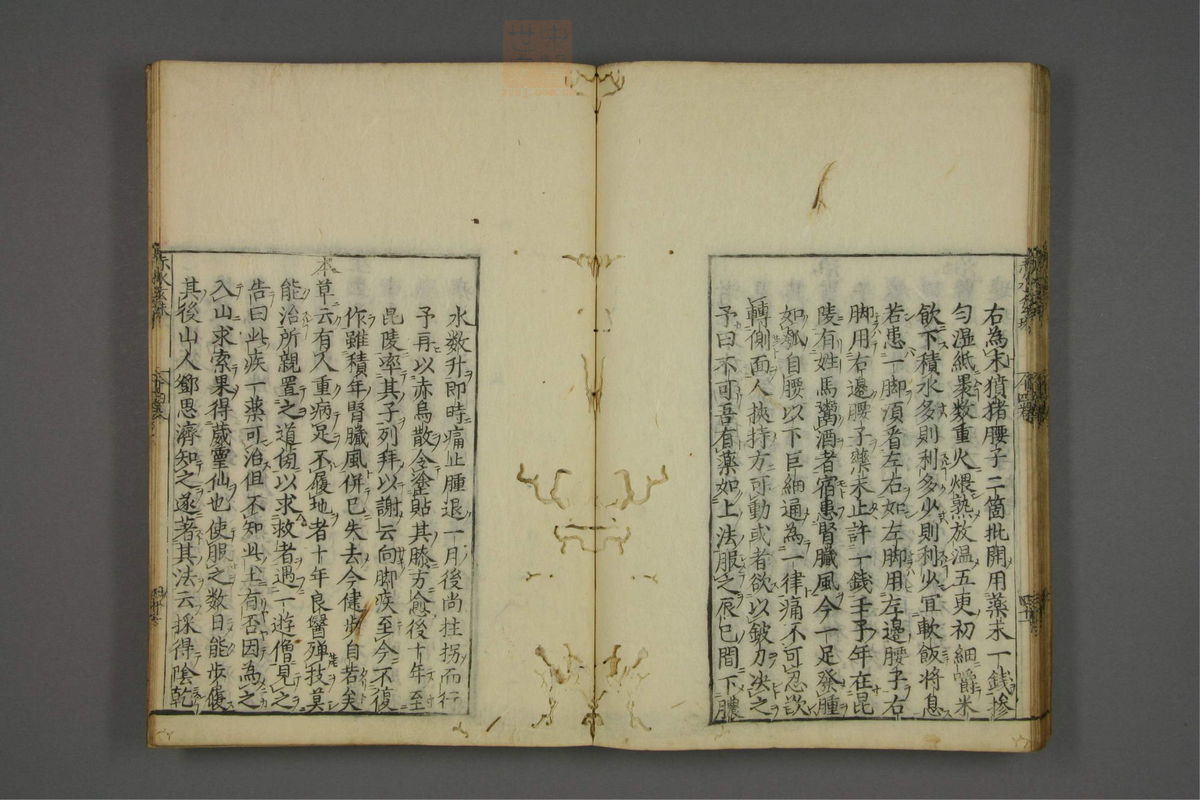 右為末獖猪腰子二箇批開用薬末一銭摻
匀湿紙裹数重火煨熟放温五更初細嚼米
飲下積水多則利多少則利少宜軟飯将息
若患一脚須看左右如左脚用左邊腰子右
脚用右邊腰子藥末止許一銭壬子年在昆
陵有姓馬鬻酒者宿患腎臓風今一足發腫
如瓠自腰以下巨細通為一律痛不可忍欲
轉側面人挾持方可動或者欲以鈹刀决之
予曰不可吾有薬如上法服之辰巳間下膿
水数升即時痛止腫退一月後尚拄拐而行
予再以赤烏散令塗貼其膝方愈後十年至
昆陵率其子列拜以謝云向脚疾至今不復
作雖積年腎臓風併已失去今健歩自若矣
本草云有人重病足不履地者十年良醫殫技莫
能治所親置之道傍以求救者遇一遊僧見之
告曰此疾一薬可治但不知此土有否因為之
入山求索果得葳靈仙也使服之数日能歩履
其後山人鄧思濟知之遂著其法云採得陰乾